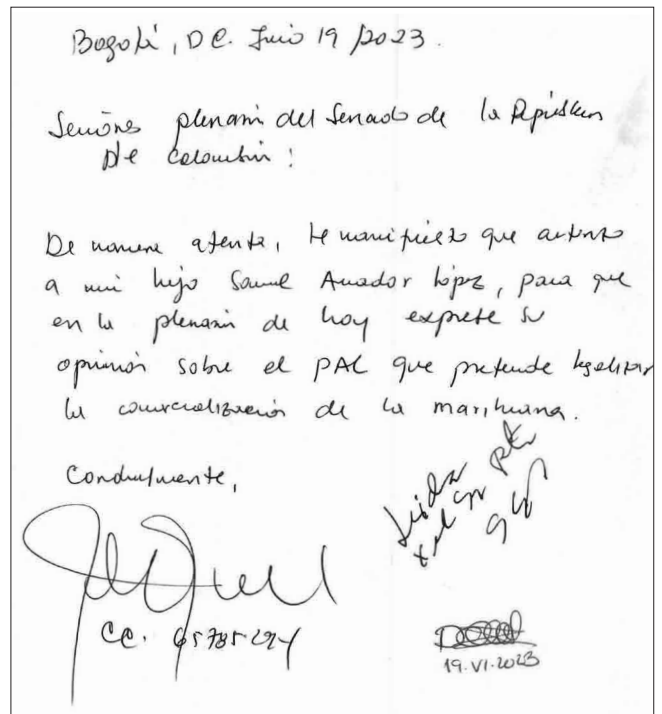 Bogotá, D.C. Junio 19/2023.
Señores plenaria del Senado de la República
De Colombia:
De manera atenta, le manifiesto que autorizo
a mi hijo Samuel Amador López, para que
en la plenaria de hoy exprese su
opinión sobre el PAL que pretende legalizar
la comercialización de la marihuana.
Cordialmente,
Leída
CC.
19.VI.2023